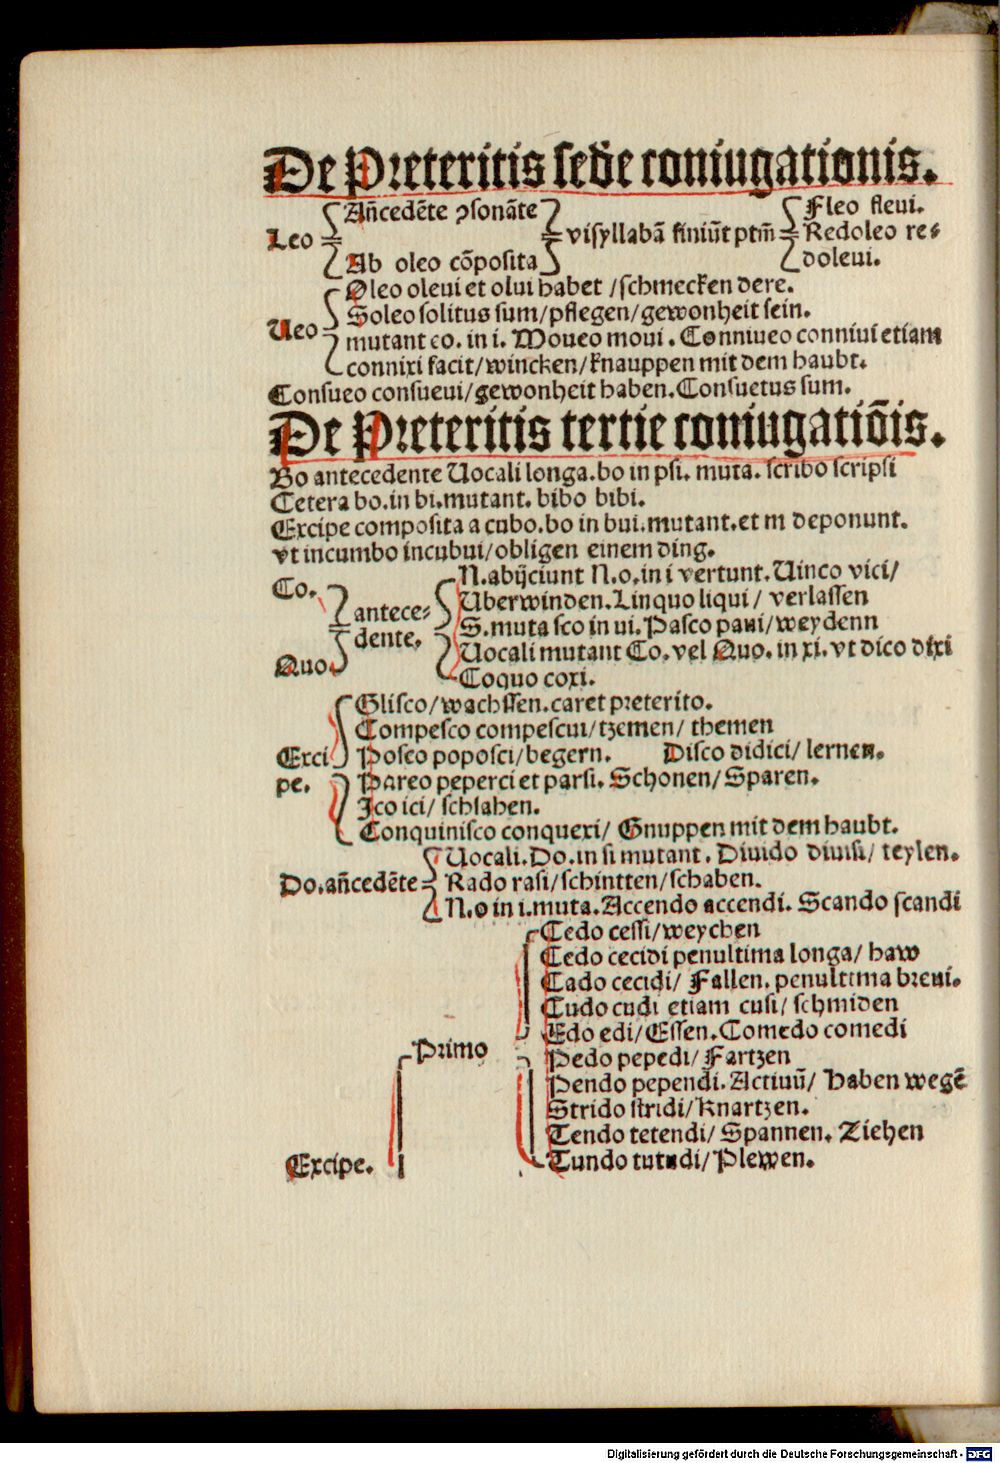 De Preteritis sed̄e coniugationis.
Leo
Añcedēte ꝯsonāte
Ab oleo cōposita
visyllabā finiūt ptm̄
Fleo fleui.
Redoleo re⸗
doleui.
Ueo
Oleo oleui et olui habet /schmecken dere.
Soleo solitus sum/pflegen/gewonheit sein.
mutant eo. in i. Moueo moui. Conniueo conniui etiam
connixi facit/wincken/knauppen mit dem haubt.
Consueo consueui/gewonheit haben. Consuetus sum.
De Preteritis tertie coniugatiōis.
Bo antecedente Uocali longa.bo in psi. muta. scribo scripsi
Cetera bo.in bi.mutant. bibo bibi.
Excipe composita a cubo.bo in bui.mutant.et m deponunt.
vt incumbo incubui/obligen einem ding.
Co.
Quo.
antece⸗
dente.
N.abijciunt N.o.in i vertunt.Uinco vici/
Uberwinden.Linquo liqui/ verlassen
S.muta sco in ui. Pasco paui/weydenn
Uocali mutant Co.vel Quo. in xi.vt dico dixi
Coquo coxi.
Exci
pe.
Glisco/wachssen.caret preterito.
Compesco compescui/tzemen/ themen
Posco poposci/begern. Disco didici/ lernen.
Pareo peperci et parsi. Schonen/ Sparen.
Ico ici/ schlahen.
Conquinisco conquexi/ Gnuppen mit dem haubt.
Do.añcedēte
Uocali.Do.in si mutant. Diuido diuisi/ teylen.
Rado rasi/schintten/schaben.
N.o in i.muta.Accendo accendi. Scando scandi
Excipe.
Primo
Cedo cessi/weychen
Cedo cecidi penultima longa/ haw
Cado cecidi/ Fallen. penultima breui.
Cudo cudi etiam cusi/ schmiden
Edo edi/Essen.Comedo comedi
Pedo pepedi/ Fartzen
Pendo pependi. Actiuū/ haben wegē
Strido stridi/ Knartzen.
Tendo tetendi/ Spannen. Ziehen
Tundo tutudi/ Plewen.
Digitalisierung gefördert durch die Deutsche Forschungsgemeinschaft - DFG